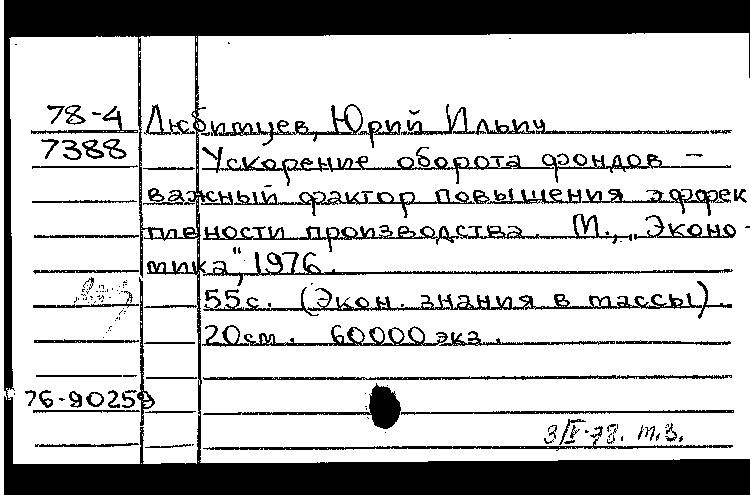 78-4 Любимцев, Юрий Ильич
7388 Ускорение оборота фондов –
важный фактор повышения эффек
тивности производства. М., „Эконо-
мика", 1976.
55с. (Экон. знания в массы).
20см. 60000 экз.
76-90259
3/IV-78. т.З.